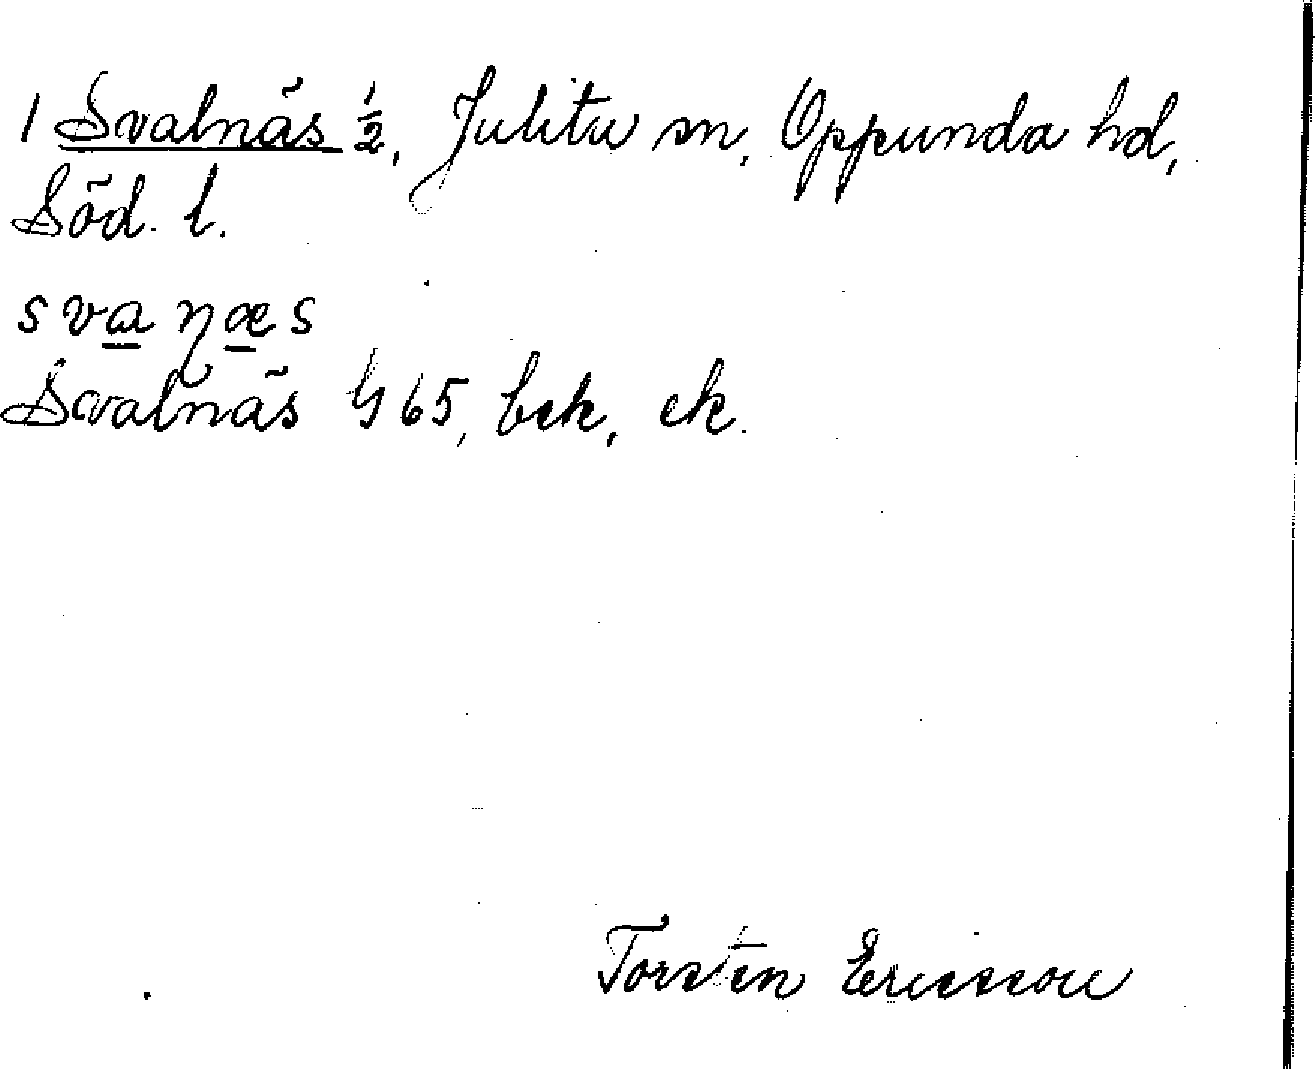 1 Svalnäs ½, Julita sn, Oppunda hd,
Söd. l.
svaɳæs
Svalnäs G 65, bek, ek.
Torsten Ericsson